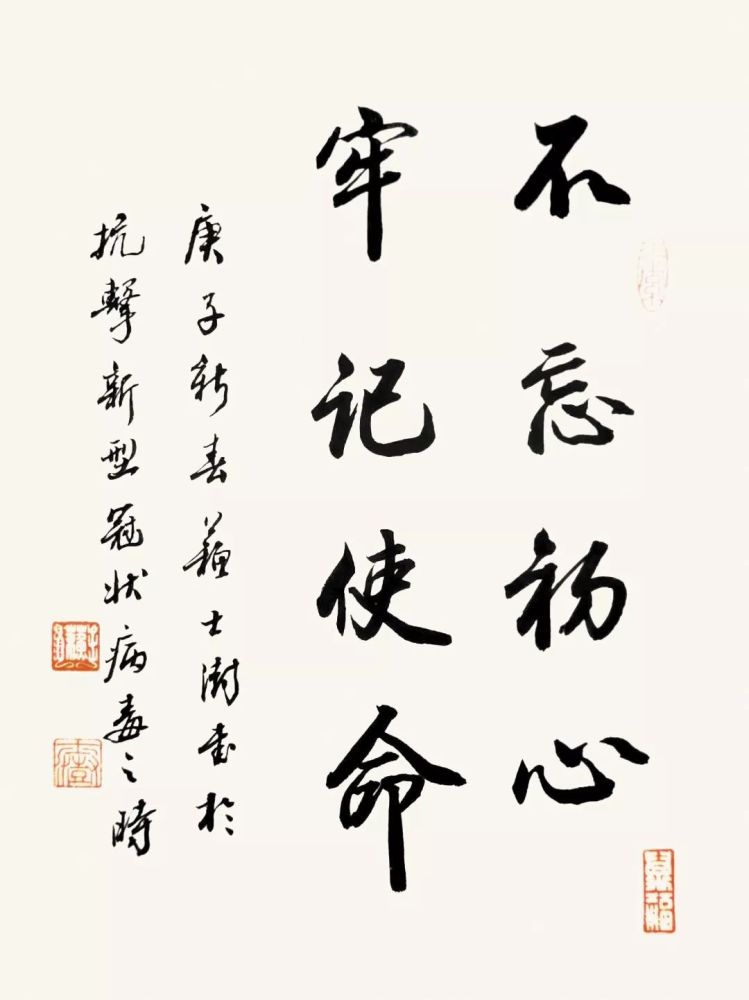 不忘初心
牢记使命
庚子新春蘇士澍书於
抗擊新型冠状病毒之時